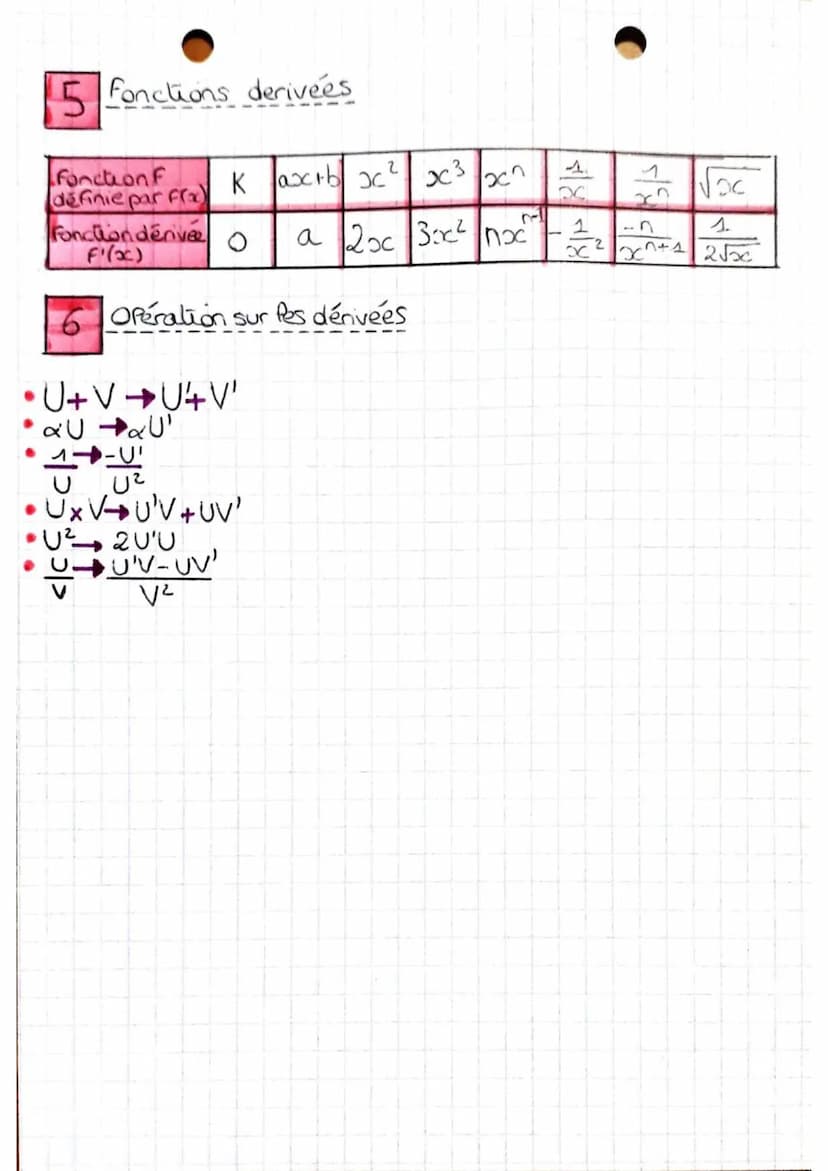 5 Fonctions derivées
Fonction F définie par F(x) | K | ax+b | x² | x³ | xⁿ | 1/x | 1/xⁿ | √x
Fonction dérivée F'(x) | 0 | a | 2x | 3x² | nxⁿ⁻¹ | -1/x² | -n/xⁿ⁺¹ | 1/2√x
6 Opération sur les dérivées
• U+V → U'+V'
• αU → αU'
• 1/U → -U'/U²
• U×V → U'V+UV'
• U² → 2U'U
• U/V → U'V-UV'/V²